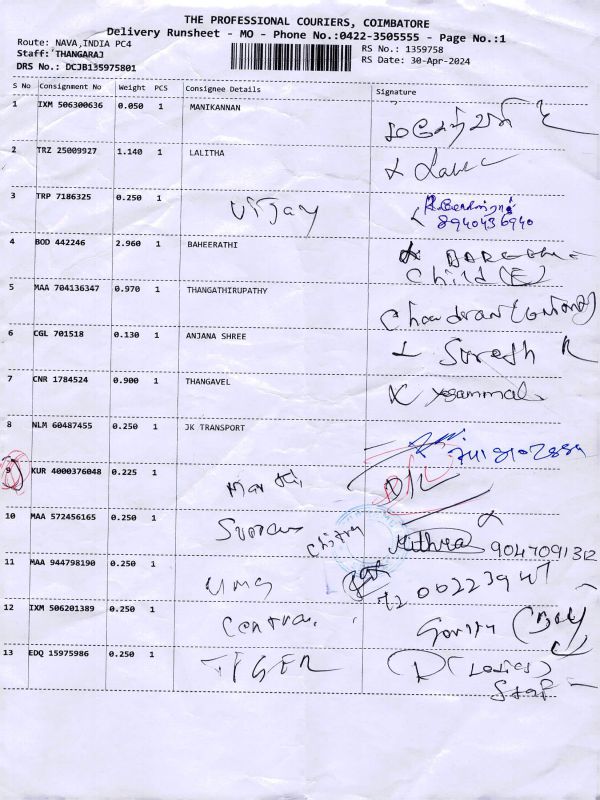 THE PROFESSIONAL COURIERS, COIMBATORE
Delivery Runsheet - MO - Phone No.:0422-3505555 - Page No.:1
Route: NAVA,INDIA PC4
RS No.: 1359758
Staff: THANGARAJ
RS Date: 30-Apr-2024
DRS No.: DCJB135975801
S No Consignment No Weight PCS Consignee Details Signature
1 IXM 506300636 0.050 1 MANIKANNAN
2 TRZ 25009927 1.140 1 LALITHA
3 TRP 7186325 0.250 1 Vijay
8940436940
4 BOD 442246 2.960 1 BAHEERATHI
Child (E)
5 MAA 704136347 0.970 1 THANGATHIRUPATHY
Chandran
6 CGL 701518 0.130 1 ANJANA SHREE Suresh
7 CNR 1784524 0.900 1 THANGAVEL
8 NLM 60487455 0.250 1 JK TRANSPORT
9 KUR 4000376048 0.225 1 D/L
10 MAA 572456165 0.250 1 Mithra 9047091312
11 MAA 944798190 0.250 1 Uma 72006223947
12 IXM 506201389 0.250 1 Central (Boy)
13 EDQ 15975986 0.250 1 TIGER (Ladies)
Staff